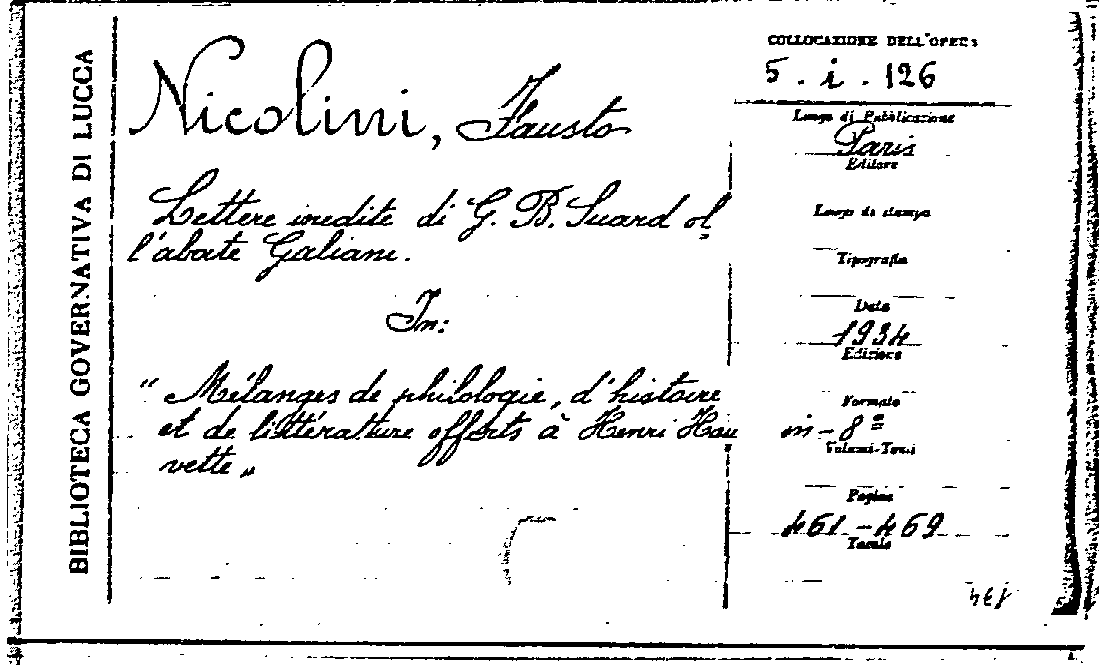 BIBLIOTECA GOVERNATIVA DI LUCCA
Nicolini, Fausto
Lettere inedite di G. B. Suard al
l'abate Galiani.
In:
"Mélanges de philologie, d'histoire
et de littérature offerts à Henri Hau
vette"
COLLOCAZIONE DELL'OPERA
5. i. 126
Luogo di Pubblicazione
Paris
Editore
Luogo di stampa
Tipografia
Data
1934
Edizione
Formato
in-8º
Volumi-Tomi
Pagine
461-469
Tavole